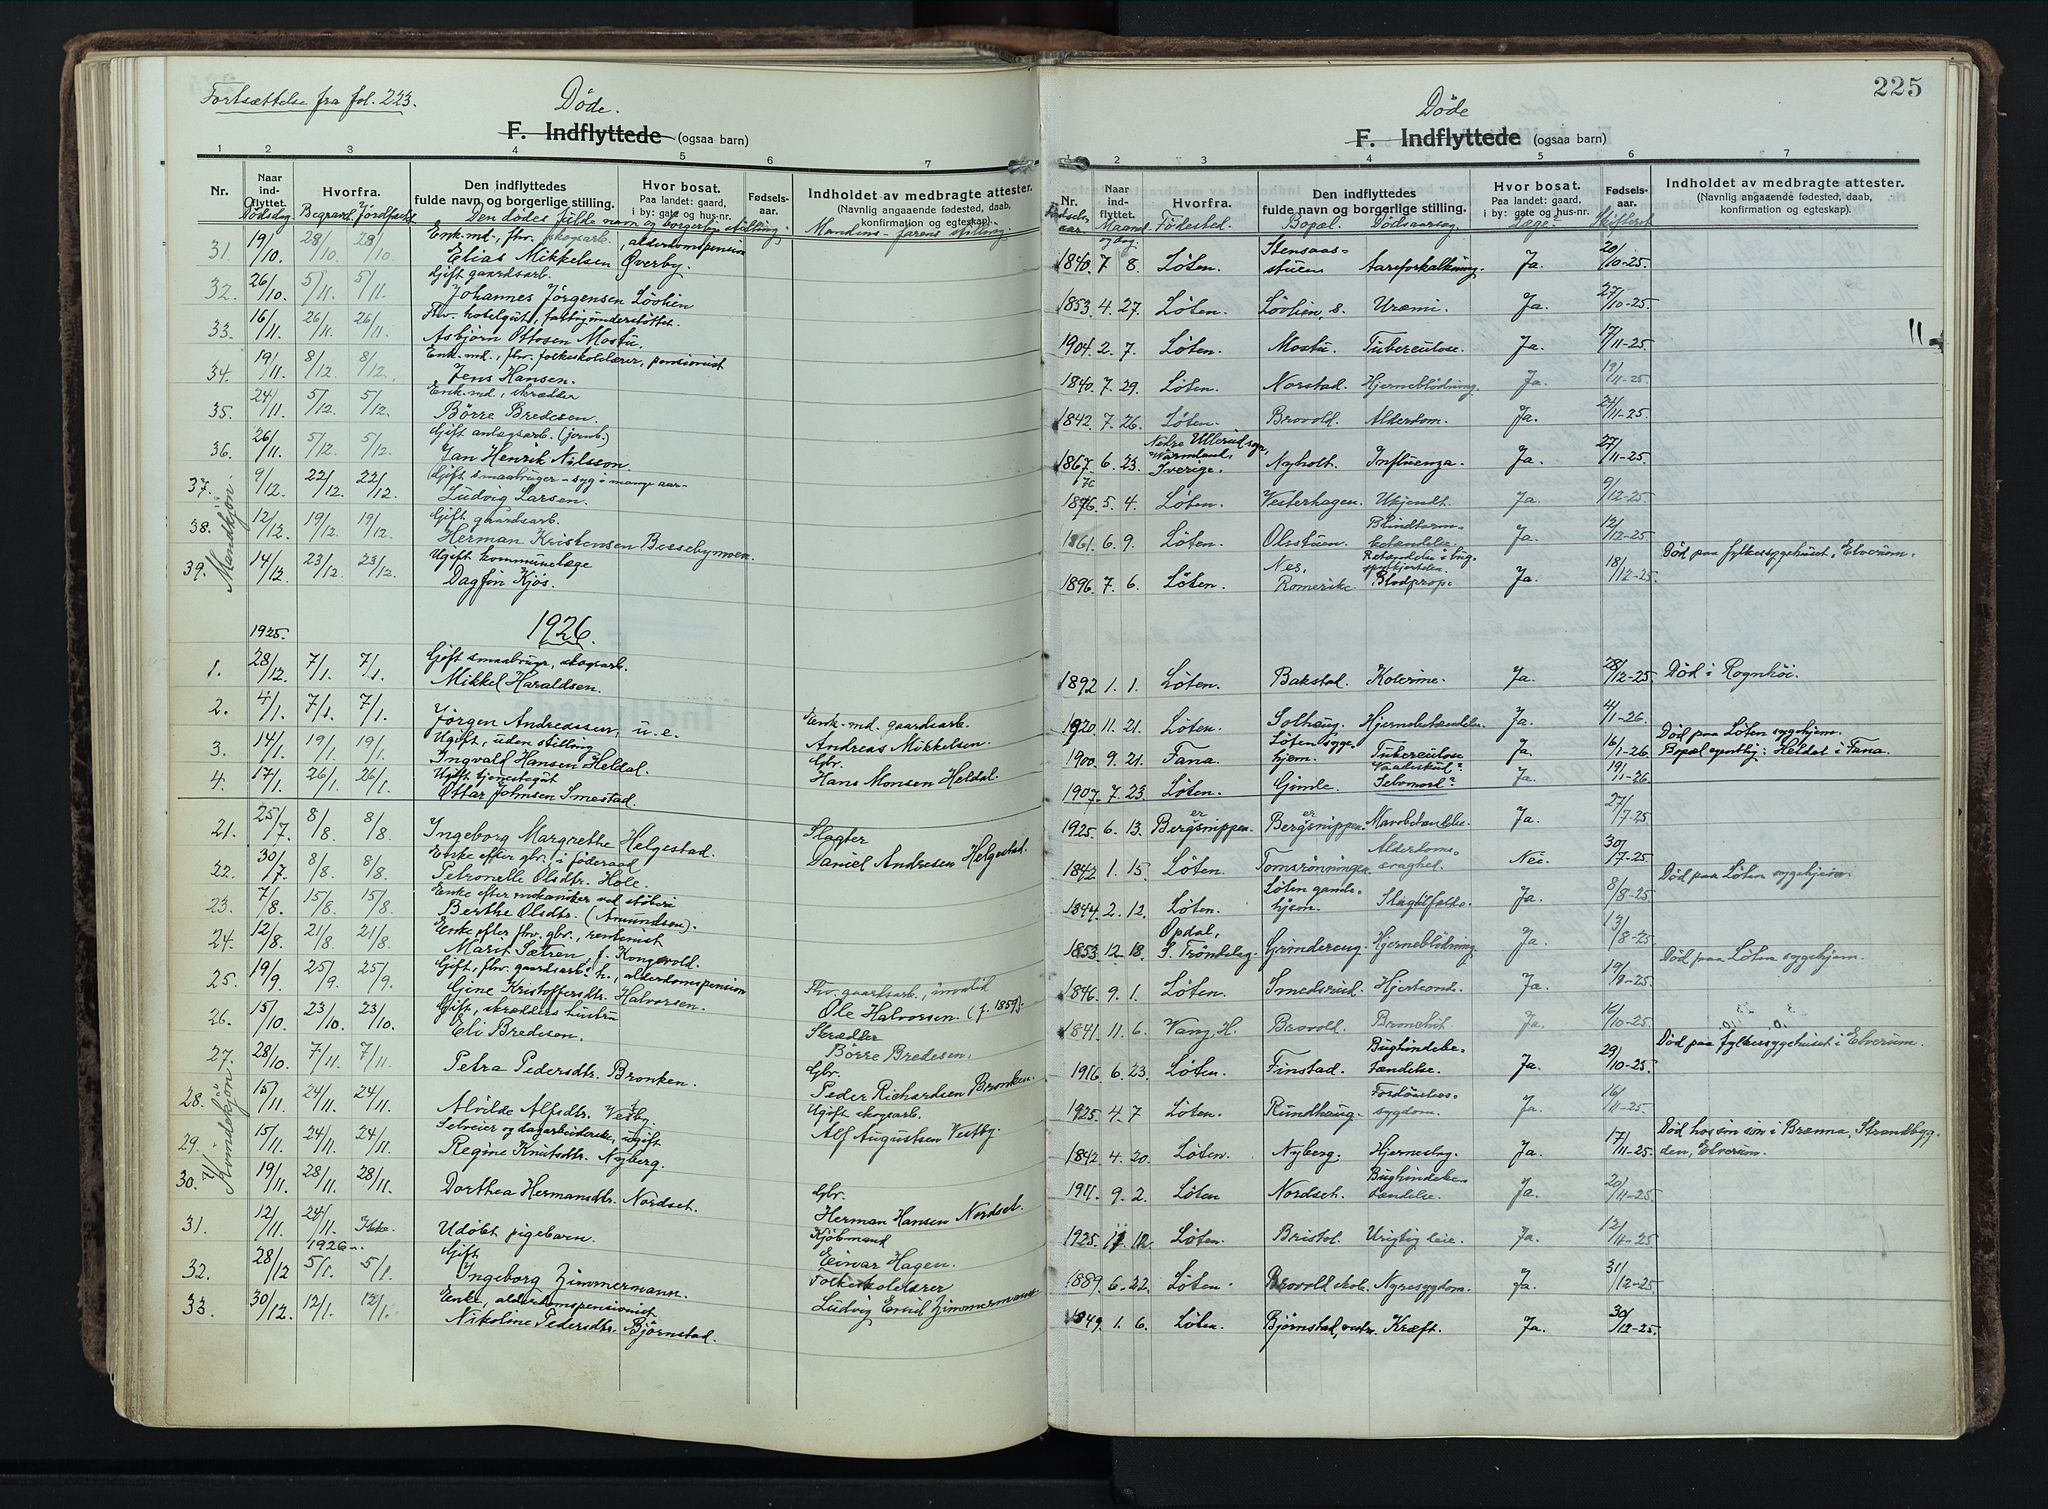 Fortsættelse fra fol. 223.
Døde.
F. Indflyttede (ogsaa barn)
1 2 3 4 5 6 7
Nr. Naar ind-flyttet. Hvorfra. Den indflyttedes fulde navn og borgerlige stilling. Hvor bosat. Paa landet: gaard, i by: gate og hus-nr. Fødsels-aar. Indholdet av medbragte attester. (Navnlig angaaende fødested, daab, konfirmation og egteskap.)
Dødsdag Begravd. Jordfæst Den dødes fulde navn og borgerlige stilling. Mandens - farens stilling.
31. 19/10. 28/10. 28/10. Enk.md., fhv. skogsarb., alderdomspension
Elias Mikkelsen Øverby.
32. 26/10. 5/11. 5/11. Gift gaardsarb.
Johannes Jørgensen Løvlien
33. 16/11. 26/11. 26/11. Fhv. hotelgut, fattigunderstøttet.
Asbjørn Ottosen Mostu.
34. 19/11. 8/12. 8/12. Enk.md., fhv. folkeskolelærer, pensionist
Jens Hansen.
35. 24/11. 5/12. 5/12. Enk.md., skrædder
Børre Bredesen.
36. 26/11. 5/12. 5/12. Gift anlægsarb. (jernb.)
Jan Henrik Nilsson.
37. 9/12. 22/12. 22/12. Gift smaabruger - syg i mange aar -
Ludvig Larsen.
38. 12/12. 19/12. 19/12. Gift gaardsarb.
Herman Kristensen Bessebymoen.
39. 14/12. 23/12. 23/12. Ugift kommunelæge
Dagfin Kjøs.
Mandkjøn.
1925. 1926.
1. 28/12. 7/1. 7/1. Gift smaabruger, skogsarb.
Mikkel Haraldsen.
2. 4/1. 7/1. 7/1. Jørgen Andreassen, u.e. Enk.md. gaardsarb.
Andreas Mikkelsen.
3. 14/1. 19/1. 19/1. Ugift, uden stilling
Ingvald Hansen Heldal. Gbr.
Hans Monsen Heldal.
4. 17/1. 26/1. 26/1. Ugift tjenestegut
Ottar Johnsen Smestad.
21. 25/7. 8/8. 8/8. Ingeborg Margrethe Helgestad. Slagter
Daniel Andresen Helgestad.
22. 30/7. 8/8. 8/8. Enke efter gbr. i føderaad
Petronelle Olsdtr. Hole.
23. 7/8. 15/8. 15/8. Enke efter mekaniker ved støberi
Berthe Olsdtr. (Amundsen).
24. 12/8. 21/8. 21/8. Enke efter fhv. gbr., rentenist
Marit Sætren, f. Kongsvold.
25. 19/9. 25/9. 25/9. Gift, fhv. gaardsarb. h., alderdomspension
Gine Kristoffersdtr. Halvorsen. Fhv. gaardsarb., invalid
Ole Halvorsen (f. 1859).
26. 15/10. 23/10. 23/10. Gift, skrædders hustru
Eli Bredesen. Skrædder
Børre Bredesen.
27. 28/10. 7/11. 7/11. Petra Pedersdtr. Bronken. Gbr.
Peder Richardsen Bronken.
28. 15/11. 24/11. 24/11. Alvilde Alfsdtr. Vestby. Ugift skogsarb.
Alf Augustsen Vestby.
29. 15/11. 24/11. 24/11. Selveier og dagarbeiderske, ugift
Regine Knutsdtr. Nyberg.
30. 19/11. 28/11. 28/11. Dorthea Hermansdtr. Nordset. Gbr.
Herman Hansen Nordset.
31. 12/11. 24/11. Ikke. Udøbt pigebarn. Kjøbmand
Einar Hagen.
1926
32. 28/12 5/1. 5/1. Gift
Ingeborg Zimmermann. Folkeskolelærer
Ludvig Emil Zimmermann.
33. 30/12. 12/1. 12/1. Enke, alderdomspensionist
Nikoline Pedersdtr. Bjørnstad.
Kvindekjøn
225
Døde
F. Indflyttede (ogsaa barn)
1 2 3 4 5 6 7
Naar ind-flyttet. Hvorfra. Den indflyttedes fulde navn og borgerlige stilling. Hvor bosat. Paa landet: gaard, i by: gate og hus-nr. Fødsels-aar. Indholdet av medbragte attester. (Navnlig angaaende fødested, daab, konfirmation og egteskap.)
Fødsels-aar. Maaned og dag. Fødested. Bopæl. Dødsaarsag. Læge. Skifteret
1840. 7 8. Løten. Stensaas-stuen Aareforkalkning. Ja. 20/10-25.
1853. 4. 27. Løten. Løvlien, s. Uræmi. Ja. 27/10-25.
1904. 2. 7. Løten. Mostu. Tuberculose. Ja. 17/11-25.
11
1840. 7. 29. Løten. Norstad. Hjerneblødning. Ja. 19/11-25.
1842. 7. 26. Løten. Brovold. Alderdom. Ja. 24/11-25.
1867. 6. 23. Nedre Ullerud sogn, Wärmland, Sverige. Nyholt. Influenza. Ja. 27/11-25.
1876. 5. 4. Løten. Vesterhagen. Ukjendt. Ja. 9/12-25.
1861. 6. 9. Løten. Olsstuen Blindtarm-betændelse. Ja. 12/12-25.
1896. 7. 6. Løten. Nes, Romerike Betændelse i bug-spytkjertelen. Blodprop. Ja. 18/12-25. Død paa fylkessygehuset i Elverum.
1892. 1. 1. Løten. Bakstad. Kolerine. Ja. 28/12-25. Død i Rognhøi.
1920. 11. 21. Løten. Solhaug. Hjernebetændelse. Ja. 4/1-26.
1900. 9. 21. Fana. Løten syge-hjem. Tuberculose Ja. 16/1-26 Død paa Løten sygehjem. Bopæl egentlig: Heldal i Fana.
1907. 7. 23. Løten. Gimle. Vaadeskud? Selvmord? Ja. 19/1-26
1925. 6. 13. Bergsnippen. Bergsnippen. Mavebetændelse. Ja. 27/7-25.
1842. 1. 15. Løten. Tomsrønningen Alderdoms-svaghet. Nei. 30/7-25. Død paa Løten sygehjem.
1844. 2. 12. Løten. Løten gamle-hjem. Slagtilfælde. Ja. 8/8-25.
1853. 12. 18. Opdal, S. Trøndelag. Grindereng. Hjerneblødning Ja. 13/8-25. Død paa Løten sygehjem.
1846. 9. 1. Løten. Smedsrud. Hjerteonde. Ja. 19/9-25.
1841. 11. 6. Vang, H. Brovold. Bronchit. Ja. 16/10-25.
1916. 6. 23. Løten. Finstad. Bughindebe-tændelse. Ja. 29/10-25. Død paa fylkessygehuset i Elverum.
1925. 4. 7. Løten. Rundhaug. Fordøielses-sygdom. Ja. 16/11-25.
1842. 4. 20. Løten. Nyberg. Hjerneslag. Ja. 17/11-25. Død hos sin søn i Brænna, Strandbyg-den, Elverum.
1911. 9. 2. Løten Nordset. Bughindebe-tændelse. Ja. 20/11-25.
1925. 11. 12. Løten. Bristol. Urigtig leie. Ja. 12/11-25.
1889. 6. 22. Løten. Brovold skole. Nyresygdom. Ja. 31/12-25.
1849. 1. 6. Løten. Bjørnstad, vestre. Kræft. Ja. 30/12-25.